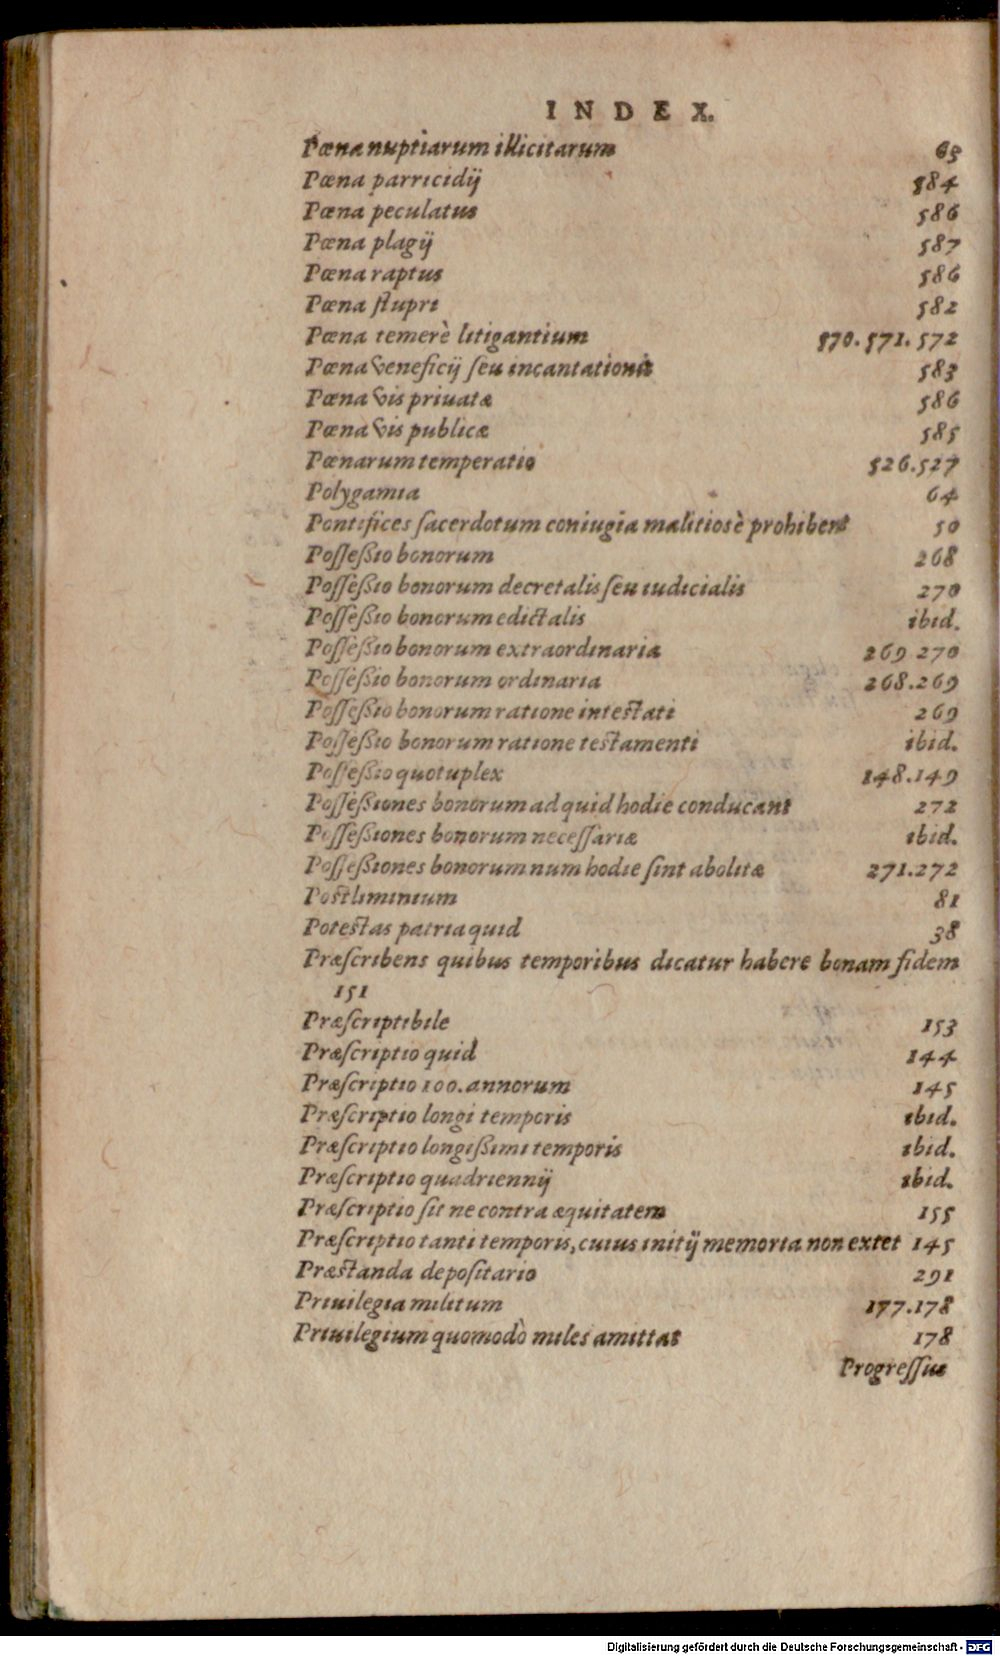 INDEX.
Pœna nuptiarum illicitarum 65
Pœna parricidij 584
Pœna peculatus 586
Pœna plagij 587
Pœna raptus 586
Pœna ſtupri 582
Pœna temerè litigantium 570.571.572
Pœna veneficij ſeu incantationis 583
Pœna vis priuatæ 586
Pœna vis publicæ 585
Pœnarum temperatio 526.527
Polygamia 64
Pontifices ſacerdotum coniugia malitiosè prohibent 50
Poſſeßio bonorum 268
Poſſeßio bonorum decretalis ſeu iudicialis 270
Poſſeßio bonorum edictalis ibid.
Poſſeßio bonorum extraordinaria 269 270
Poſſeßio bonorum ordinaria 268.269
Poſſeßio bonorum ratione inteſtati 269
Poſſeßio bonorum ratione teſtamenti ibid.
Poſſeßio quotuplex 148.149
Poſſeßiones bonorum ad quid hodie conducant 272
Poſſeßiones bonorum neceſſariæ ibid.
Poſſeßiones bonorum num hodie ſint abolitæ 271.272
Poſtliminium 81
Poteſtas patria quid 38
Præſcribens quibus temporibus dicatur habere bonam fidem
151
Præſcriptibile 153
Præſcriptio quid 144
Præſcriptio 100. annorum 145
Præſcriptio longi temporis ibid.
Præſcriptio longißimi temporis ibid.
Præſcriptio quadriennij ibid.
Præſcriptio ſit ne contra æquitatem 155
Præſcriptio tanti temporis, cuius initij memoria non extet 145
Præſtanda depoſitario 291
Priuilegia militum 177.178
Priuilegium quomodò miles amittat 178
Progreſſus
Digitalisierung gefördert durch die Deutsche Forschungsgemeinschaft - DFG